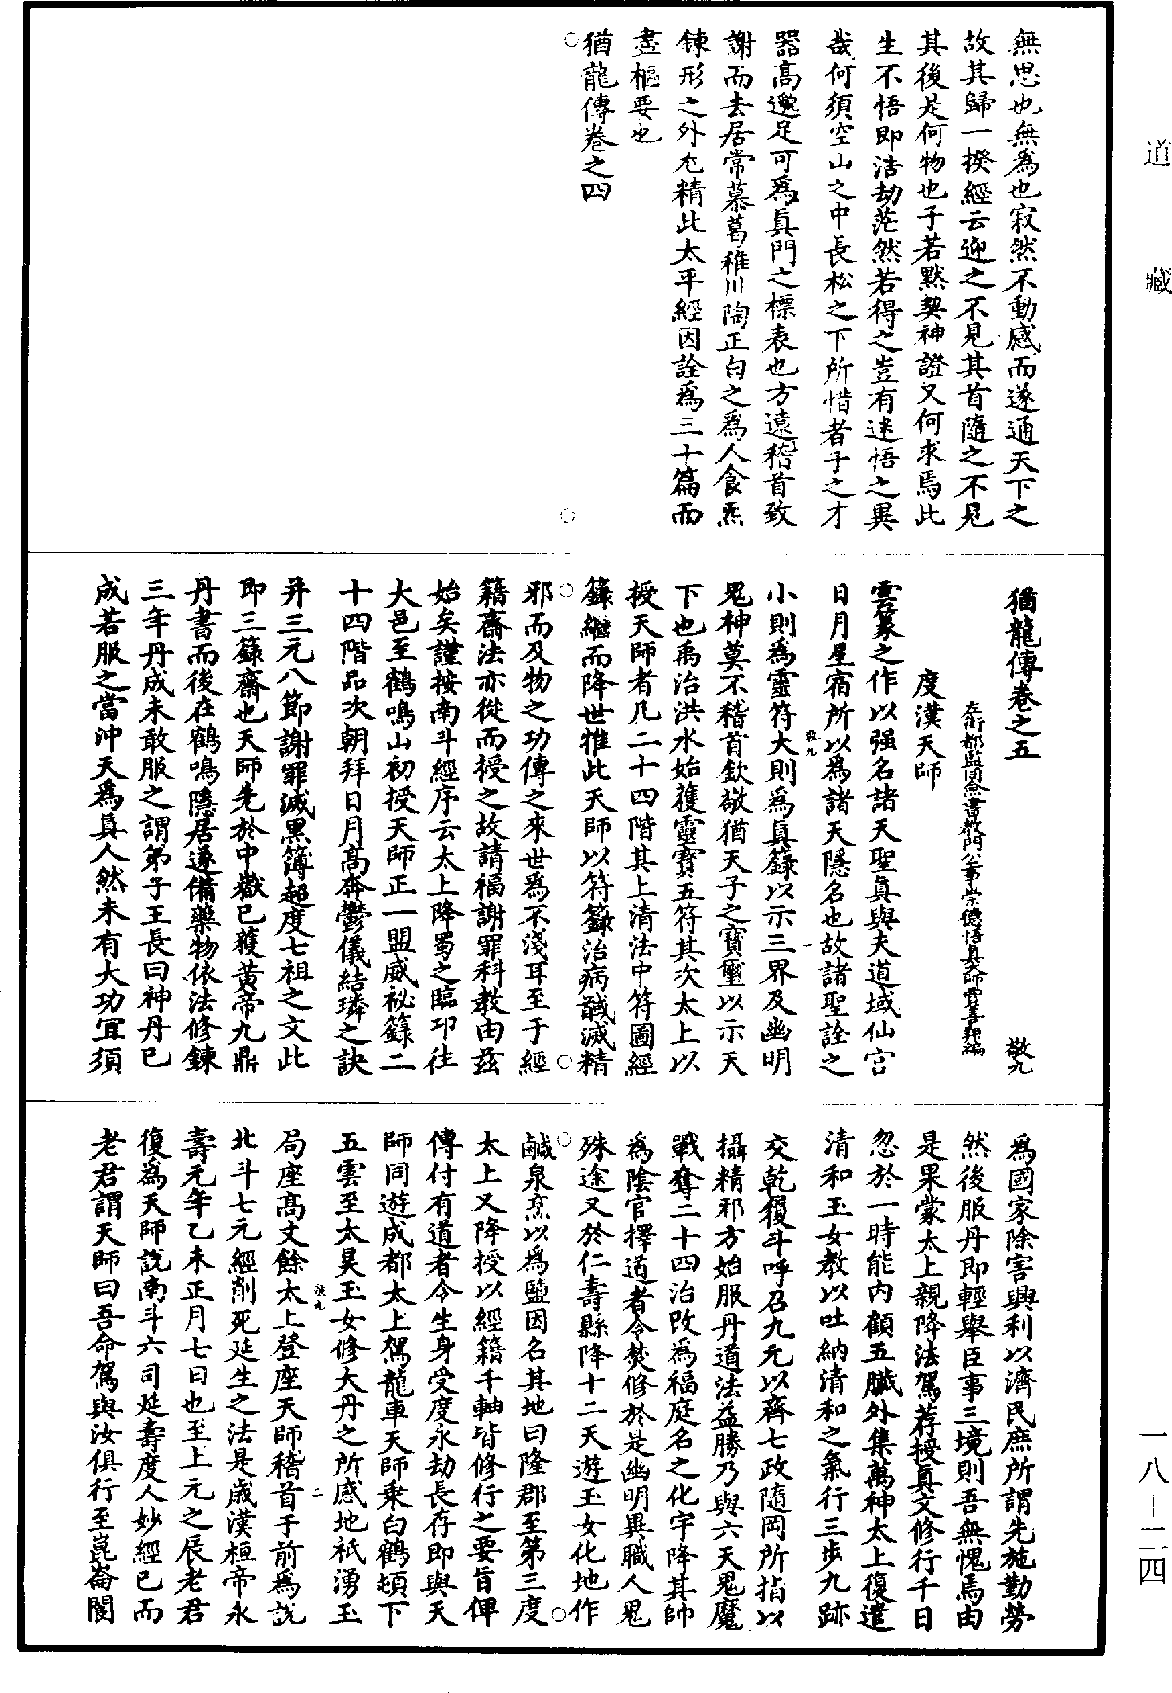 道藏
無思也無為也寂然不動感而遂通天下之
故其歸一揆經云迎之不見其首隨之不見
其後是何物也子若默契神證又何求焉此
生不悟即浩劫茫然若得之豈有迷悟之異
哉何須空山之中長松之下所惜者子之才
器高邈足可為真門之標表也方遠稽首致
謝而去居常慕葛稚川陶正白之為人食炁
鍊形之外尤精此太平經因詮為三十篇而
盡樞要也
猶龍傳卷之四
猶龍傳卷之五
敬九
左街都監同僉書教門公事崇德悟真大師賈善翔編
度漢天師
雲篆之作以强名諸天聖真與夫道域仙宫
日月星宿所以為諸天隱名也故諸聖詮之
小則為靈符大則為真籙以示三界及幽明
鬼神莫不稽首欽敬猶天子之寶璽以示天
下也禹治洪水始獲靈寶五符其次太上以
授天師者凡二十四階其上清法中符圖經
籙繼而降世惟此天師以符籙治病馘滅精
邪而及物之功傳之來世為不淺耳至于經
籍齋法亦從而授之故請福謝罪科教由茲
始矣謹按南斗經序云太上降蜀之臨邛往
大邑至鶴鳴山初授天師正一盟威祕籙二
十四階品次朝拜日月高奔鬱儀結璘之訣
并三元八節謝罪滅黑簿超度七祖之文此
即三籙齋也天師先於中嶽已獲黃帝九鼎
丹書而後在鶴鳴隱居遂備藥物依法修鍊
三年丹成未敢服之謂弟子王長曰神丹已
成若服之當沖天為真人然未有大功宜須
為國家除害興利以濟民庶所謂先施勤勞
然後服丹即輕舉臣事三境則吾無愧焉由
是果蒙太上親降法駕荐授真文修行千日
忽於一時能內顧五臟外集萬神太上復遣
清和玉女教以吐納清和之氣行三步九跡
交乾履斗呼召九元以齊七政隨罡所指以
攝精邪方始服丹道法益勝乃與六天鬼魔
戰奪二十四治改為福庭名之化宇降其帥
為陰官擇道者令焚修於是幽明異職人鬼
殊途又於仁壽縣降十二天遊玉女化地作
鹹泉烹以為鹽因名其地曰隆郡至第三度
太上又降授以經籍千軸皆修行之要旨俾
傳付有道者令生身受度永劫長存即與天
師同遊成都太上駕龍車天師乘白鶴頓下
五雲至太昊玉女修大丹之所感地祇湧玉
局座高丈餘太上登座天師稽首于前為說
北斗七元經削死延生之法是歲漢桓帝永
壽元年乙未正月七日也至上元之辰老君
復為天師說南斗六司延壽度人妙經已而
老君謂天師曰吾命駕與汝俱行至崑崙閬
一八—二四